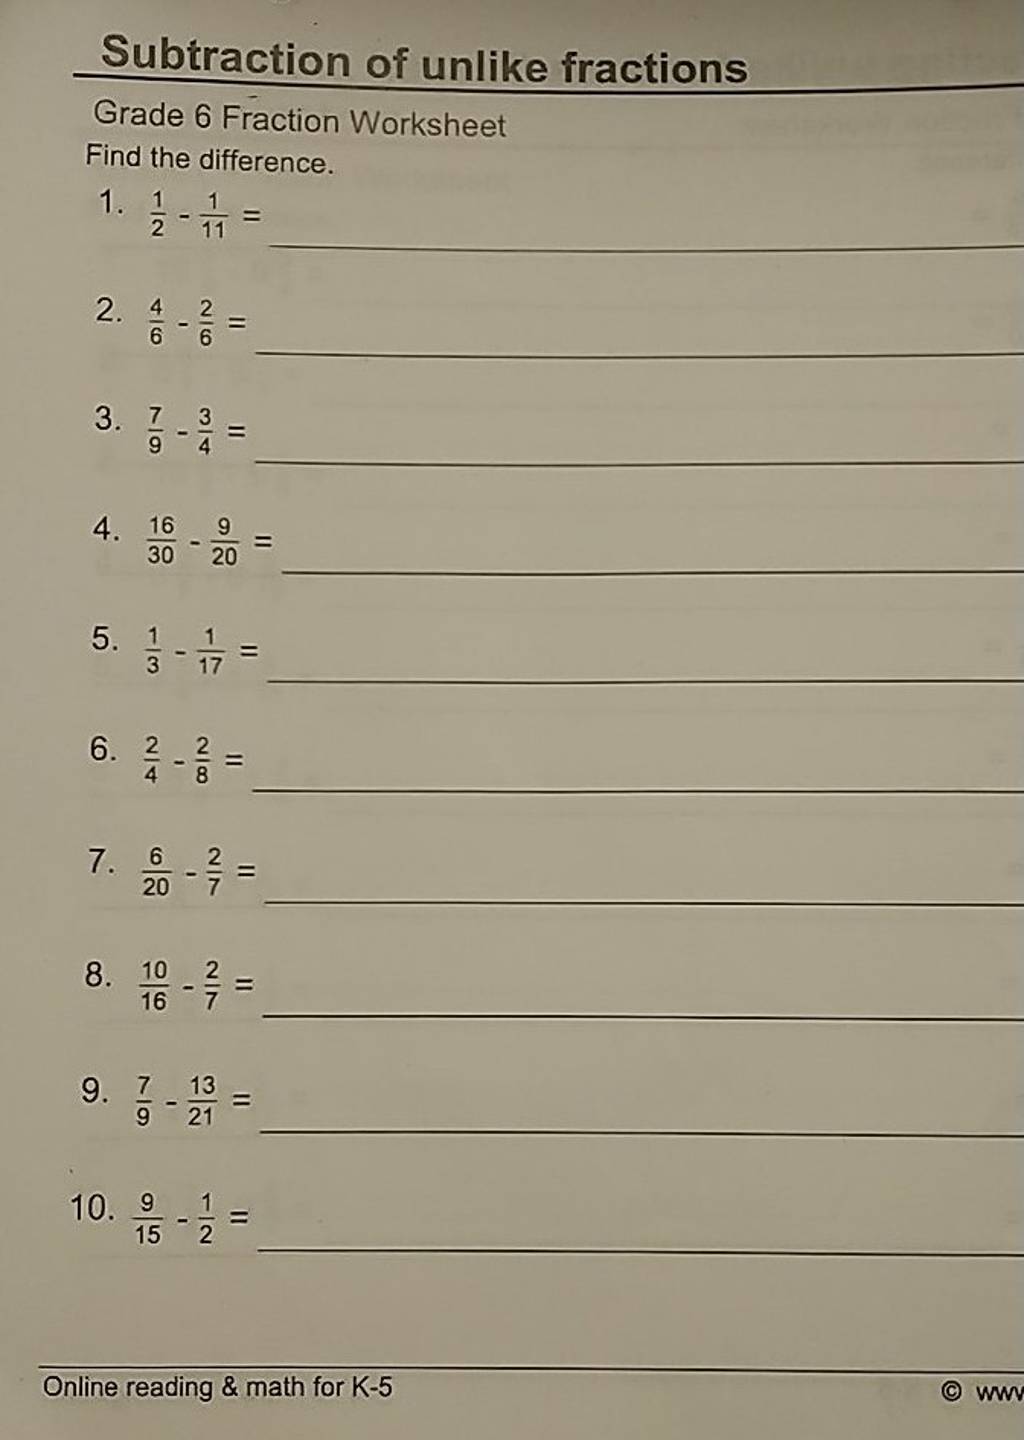 Subtraction of unlike fractions
Grade 6 Fraction Worksheet
Find the difference.
1. 1/2 - 1/11 =
2. 4/6 - 2/6 =
3. 7/9 - 3/4 =
4. 16/30 - 9/20 =
5. 1/3 - 1/17 =
6. 2/4 - 2/8 =
7. 6/20 - 2/7 =
8. 10/16 - 2/7 =
9. 7/9 - 13/21 =
10. 9/15 - 1/2 =
Online reading & math for K-5
© www